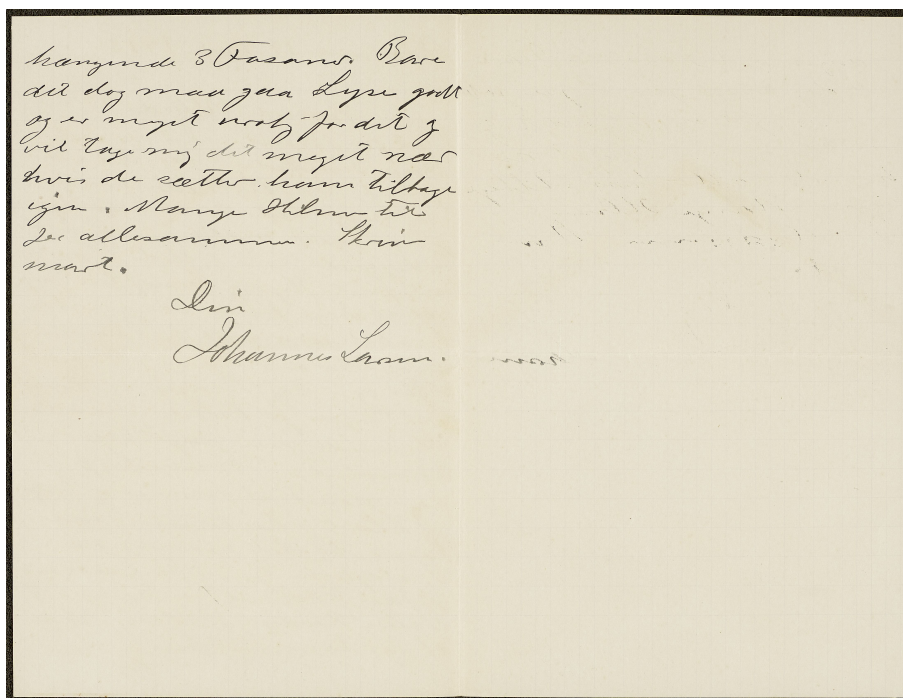 hængende 3 Fasaner. Bare
det dog maa gaa Lysse godt
og er meget urolig for det og
vil tage mig det meget nær
hvis de sætter ham tilbage
igen. Mange Hilsner til
Jer allesammen. Skriv
snart.
Din
Johannes Larsen.